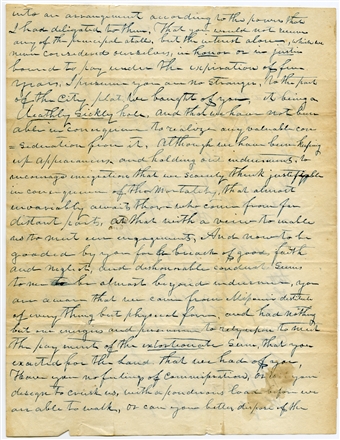 into an arrangement according to the powers that
I had deligated to them. That you would not exact
any of the principal stalls, but the interest alone, which
we now considered ourselves, in honor or in justice
bound to pay under the expiration of five
years, I presume you are no stranger, to the part
of the City plat, we bought of you, it being a
deathly sickly hole, And that we have not been
able in consequence to realize any valuable con=
=sideration from it. Although we have been keeping
up appearances, and holding out inducements, to
encourage emigration that we scarcely think justifiable
in consequence of the Mortality, that almost
invariably awaits those who come from far
distant parts, and that with a view to enable
us to meet our engagements, And now to be
goaded by you for a breach of good faith
and neglect, and dishonorable conduct seems
to me to be almost beyond indurance, you
are aware that we came from Missouri distitute
of every thing but physical force, and had nothing
but our energies and perseverance to rely upon to meet
the payment of the extortionate sum that you
exacted for the Land that we had of you,
Have you no feelings of commiseration, or is it your
design to crush us, with a ponderous load before we
are able to walk, or can you better dispose of the